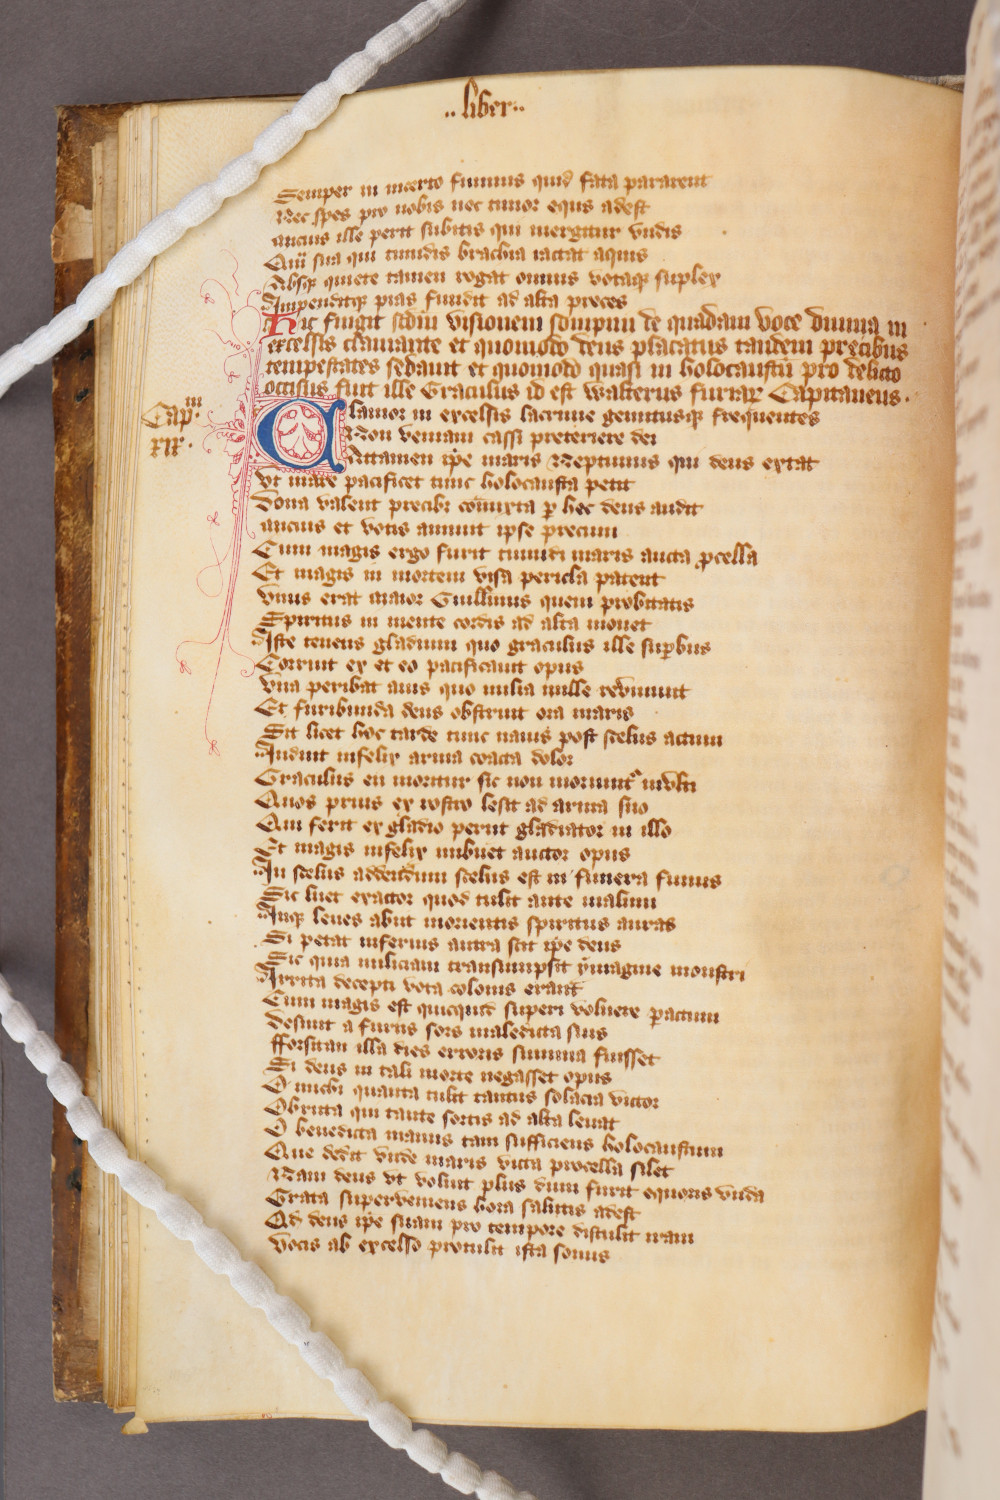 ..liber..
Semper in incerto fuimus quid fata pararent
Nec spes pro nobis nec timor equs adest
ancius ille perit subitis qui mergitur vndis
Qui sua qui timidis brachia iactat aquis
Absqꝫ quiete tamen rogat omnis votaqꝫ suplex
Impenditqꝫ pias fundit ad alta preces
Hic fingit scdm visionem sompnii de quadam voce diuina in
excelsis clamante et quomodo deus placatus tandem precibus
tempestates sedauit et quomodo quasi in holocaustū pro delicto
occisus fuit ille Graculus id est walterus furiaꝝ Capitaneus.
Capm xix.
Clamor in excelsis lacrime gemitusqꝫ frequentes
Non veniam cassi preteriere dei
Attamen ipe maris Neptunus qui deus extat
vt mare pacificet tunc holocausta petit
Dona valent precibꝫ comixta ꝑ hec deus audit
ancius et votis annuit ipse precum
Cum magis ergo furit tumidi maris aucta ꝓcella
Et magis in mortem visa pericla patent
vnus erat maior Guillmus quem probitatis
Spiritus in mente cordis ad alta mouet
Iste tenens gladium quo graculus ille suꝑbus
Corruit ex et eo pacificauit opus
vna peribat auis quo milia mille reviuunt
Et furibunda deus obstruit ora maris
Sit licet hoc tarde tunc nauis post scelus actum
Induit infelix arma coacta dolor
Graculus en moritur sic non moriunt multi
Quos prius ex rostro lesit ad arma suo
Qui ferit ex gladio periit gladiator in illo
Et magis infelix imbuet auctor opus
In scelus addendum scelus est in funera funus
Sic luet exactor quod tulit ante malum
Inqꝫ leues abiit morientis spiritus auras
Si petat inferius antra scit ipe deus
Sic quia miliciam transumpsit ymagine monstri
Irrita decepti vota colonis erant
Cum magis est quicquid superi voluere ꝑactum
desinit a furiis sors maledicta suis
fforsitan illa dies erroris summa fuisset
Si deus in tali morte negasset opus
O michi quanta tulit tantus solacia victor
Obruta qui tante sortis ad alta leuat
O benedicta manus tam sufficiens holocaustum
Que dedit vnde maris victa procella silet
Nam deus vt voluit plus dum furit equoris vnda
Grata superveniens hora salutis adest
Ad deus ipe suam pro tempore distulit iram
vocis ab excelso protulit ista sonus